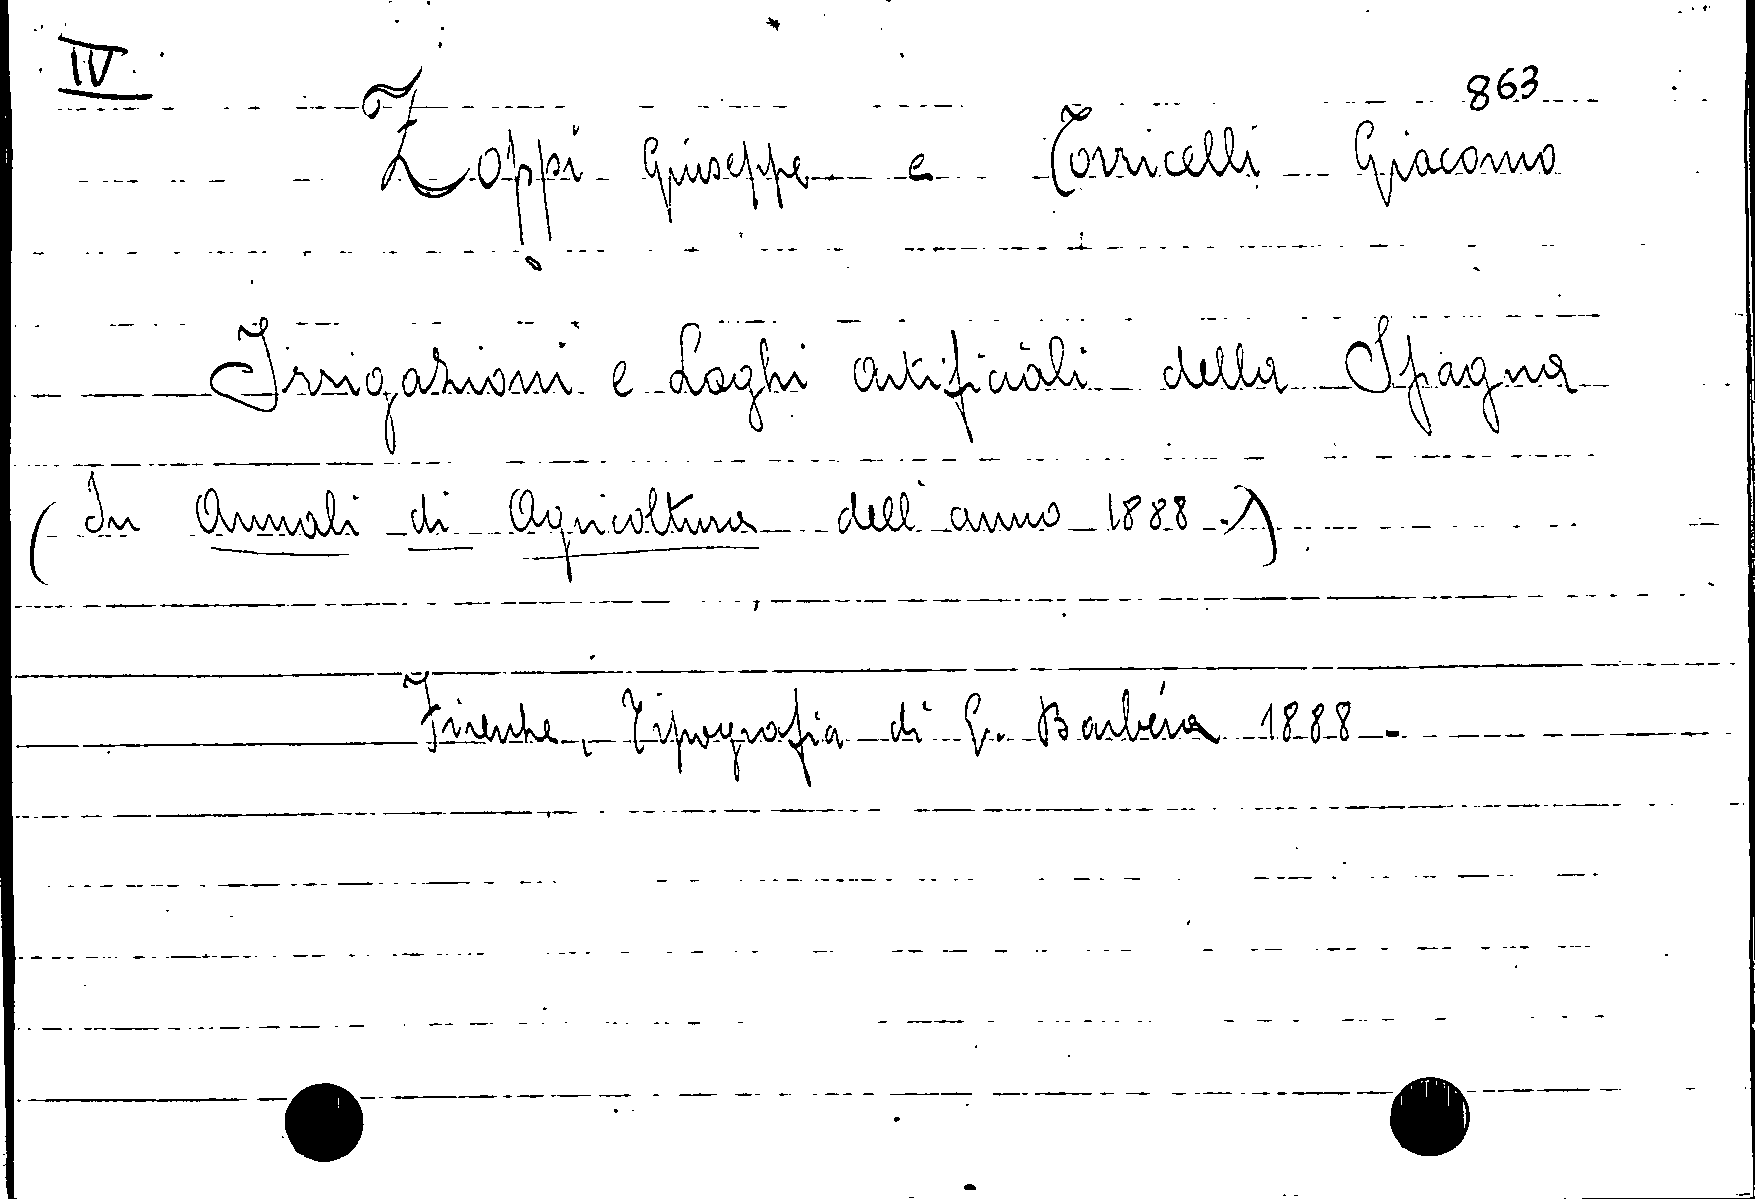 IV
863
Zoppi Giuseppe e Torricelli Giacomo
Irrigazioni e Laghi artificiali della Spagna
(In Annali di Agricoltura dell'anno 1888.)
Firenze, Tipografia di G. Barbéra 1888.